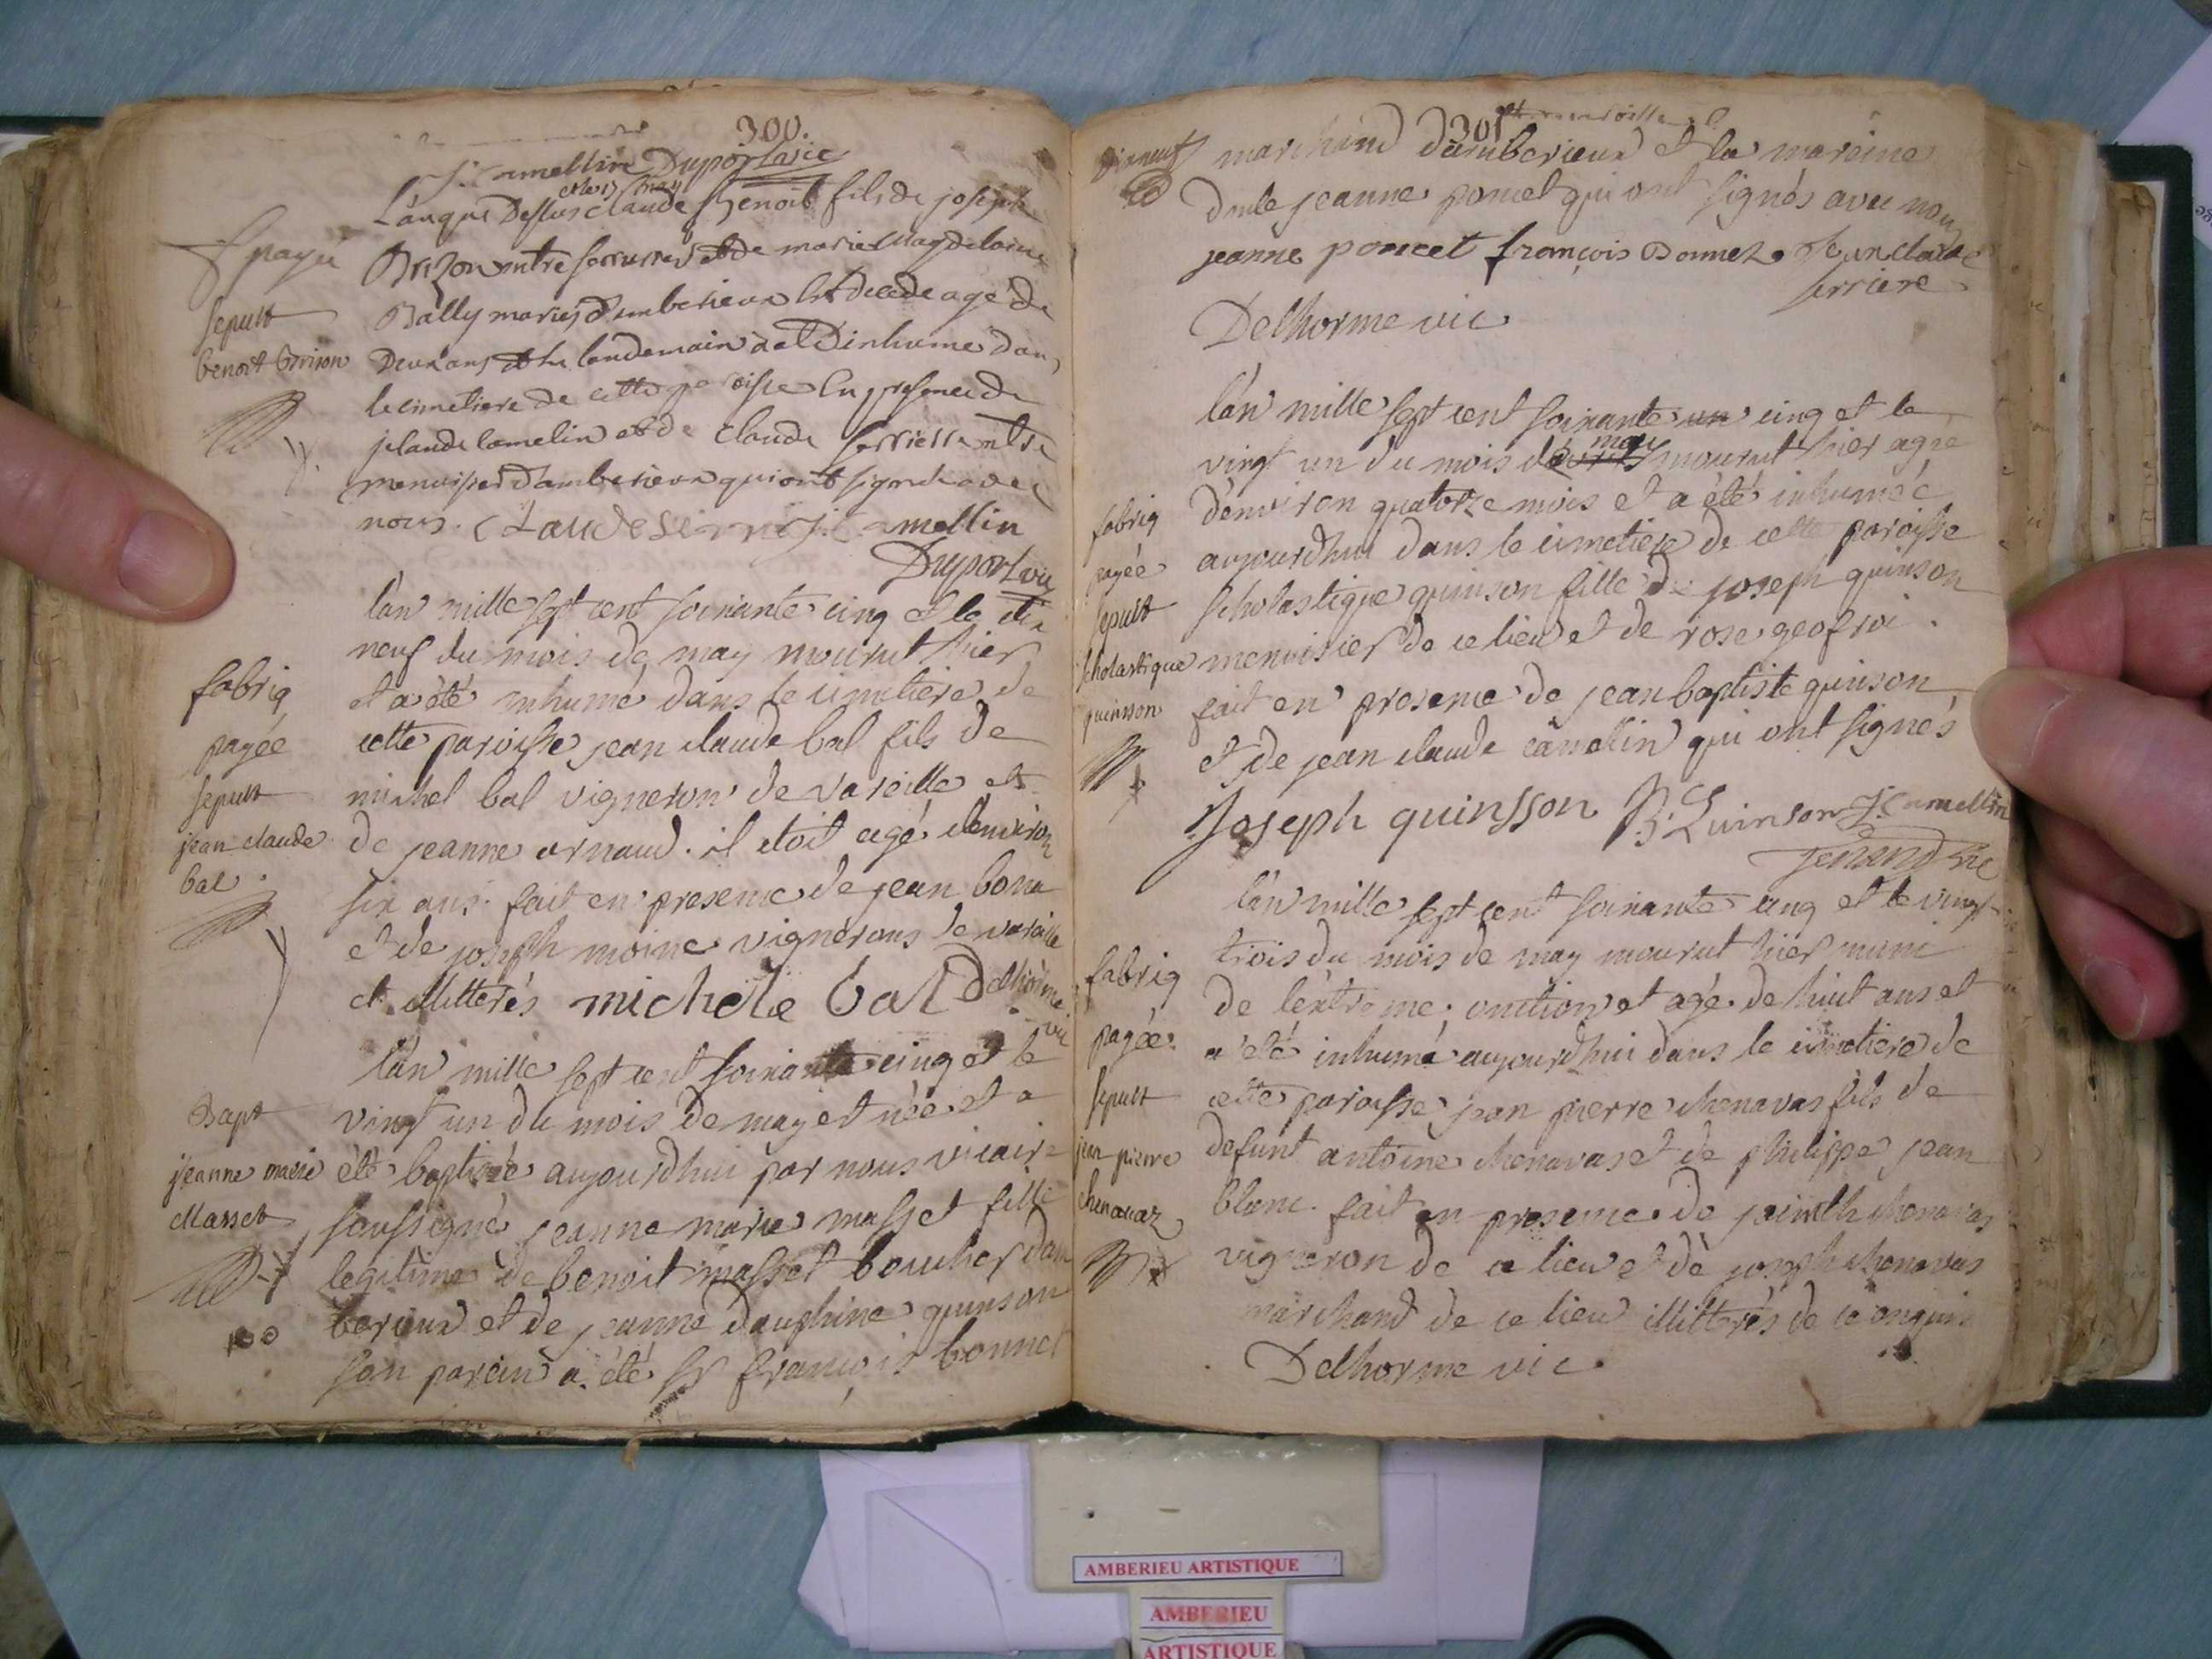 300.
J. Camellin Duport vic
L'an que Dessus et le 17 may claude Benoit fils de joseph
f payée
Brison mtre serrurier et de marie Magdelaine
Bally mariés d'amberieux Est decede agé de
sepult
benoit brison
Deux ans et le landemain a eté inhumé dans
le cimetiere de cette paroisse En presence de
jclaude camelin et de claude serriere mtre
menuisier d'amberieux qui ont signé avec
nous. Claude serriere J. Camellin
Duport vic
l'an mille sept cent soixante cinq et le dix
neuf du mois de may mourut hier
fabriq
et a été inhumé dans le cimetiere de
payée
cette paroisse jean claude bal fils de
sepult
michel bal vigneron de vareille et
jean claude
de jeanne arnaud. il etoit agé d'environ
bal.
six ans. fait en presence de jean bona
et de joseph moine vignérons de vareille
et illitterés michele bal Delhorme
vic
l'an mille sept cent soixante cinq et le
Bapt
vingt un du mois de may est née et a
jeanne marie
été baptisée aujourdhui par nous vicaire
Masset
soussigné jeanne marie masset fille
legitime de benoit masset boucher dam
berieux et de jeanne dauphine quinson
son parein a été sr françois bonnet
301
marchand d'amberieux et la mareine
dnlle jeanne poncet qui ont signés avec nous
jeanne poncet françois Bonnet Jean claude
serriere
Delhorme vic
l'an mille sept cent soixante un cinq et le
vingt un du mois d'avril may mourut hier agée
d'environ quatorze mois et a été inhumée
fabriq
aujourdhui dans le cimetiere de cette paroisse
payée
sepult
scholastique quinson fille de joseph quinson
scholastique
menuisier de ce lieu et de rose geofroi.
quinsson
fait en presence de jean baptiste quinson
et de jean claude camelin qui ont signés
Joseph quinsson B. Quinson J. Camellin
l'an mille sept cent soixante cinq et le vingt
trois du mois de may mourut hier muni
fabriq
de l'extreme onction et agé de huit ans et
payée.
a été inhumé aujourdhui dans le cimetiere de
sepult
cette paroisse jean pierre chenavas fils de
jean pierre
defunt antoine chenavas et de philippe jean
chenavaz
blanc. fait en presence de jacinth chenavas
vigneron de ce lieu et de joseph chenavas
marchand de ce lieu illitterés de ce enquis
Delhorme vic.
AMBERIEU ARTISTIQUE
AMBERIEU
ARTISTIQUE